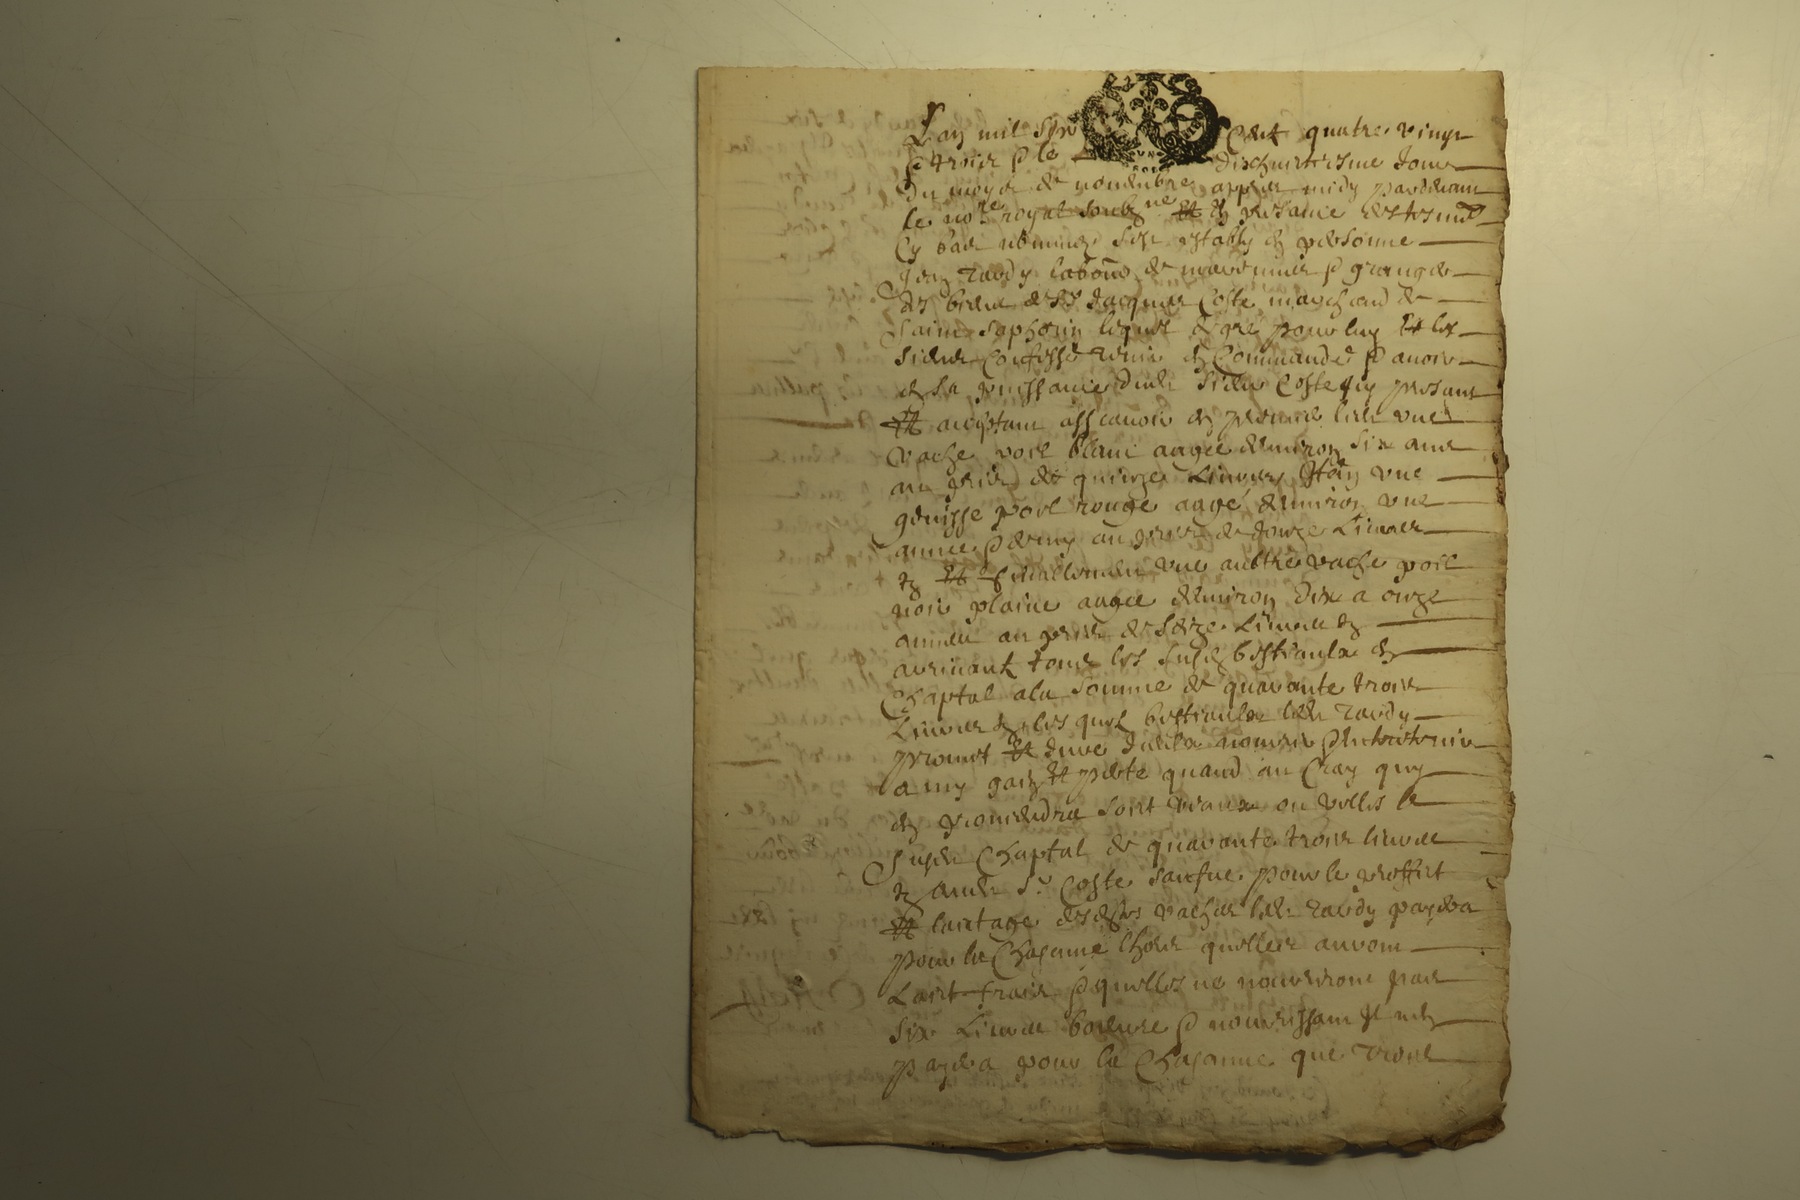 Lan mil six Cent quatre vingt
& trois & le dixhuictiesme Jour
du moys de nouembre appres midy pardeuant
le no.re royal soubz.ne et en presance des tesmoi
Cy bas nommez sest estably en personne
Jean Tardy labour de & grange
des biens de Sr Jacques Coste marchand de
Saint Saphorin lequel de gre pour luy et les
siens Confesse tenir en Commande & auoir
en sa puissance dudt sieur Coste Icy presant
et aceptant assauoir en premier lieu vne
vache poil blanc aagee denuiron six ans
au pris de quinze Liures Item vne
genisse poil rouge aagé denuiron vne
annee & demy au pris de douze Liures
et finalement vne aultre vache poil
noir plaine aagee denuiron dix a onze
annees au pris de seize Liures
arriuant tous les susd bestiaulx en
Chaptal ala somme de quarante trois
Liures les quels bestiaulx ledt Tardy
promet et Jure Iceulx nourrir & entretenir
a my gain et perte quand au Cray quy
en prouiendra soit veaux ou velles le
susdt Chaptal de quarante trois liures
audt Sr Coste sauf que pour le proffict
et laictage desdtes vaches ledt Tardy payera
pour la Chascune lhors quelles auront
Laict frais & quelles ne nourriront pas
six Liures beurre & nourrissant Il nen
payera pour la Chascune que trois